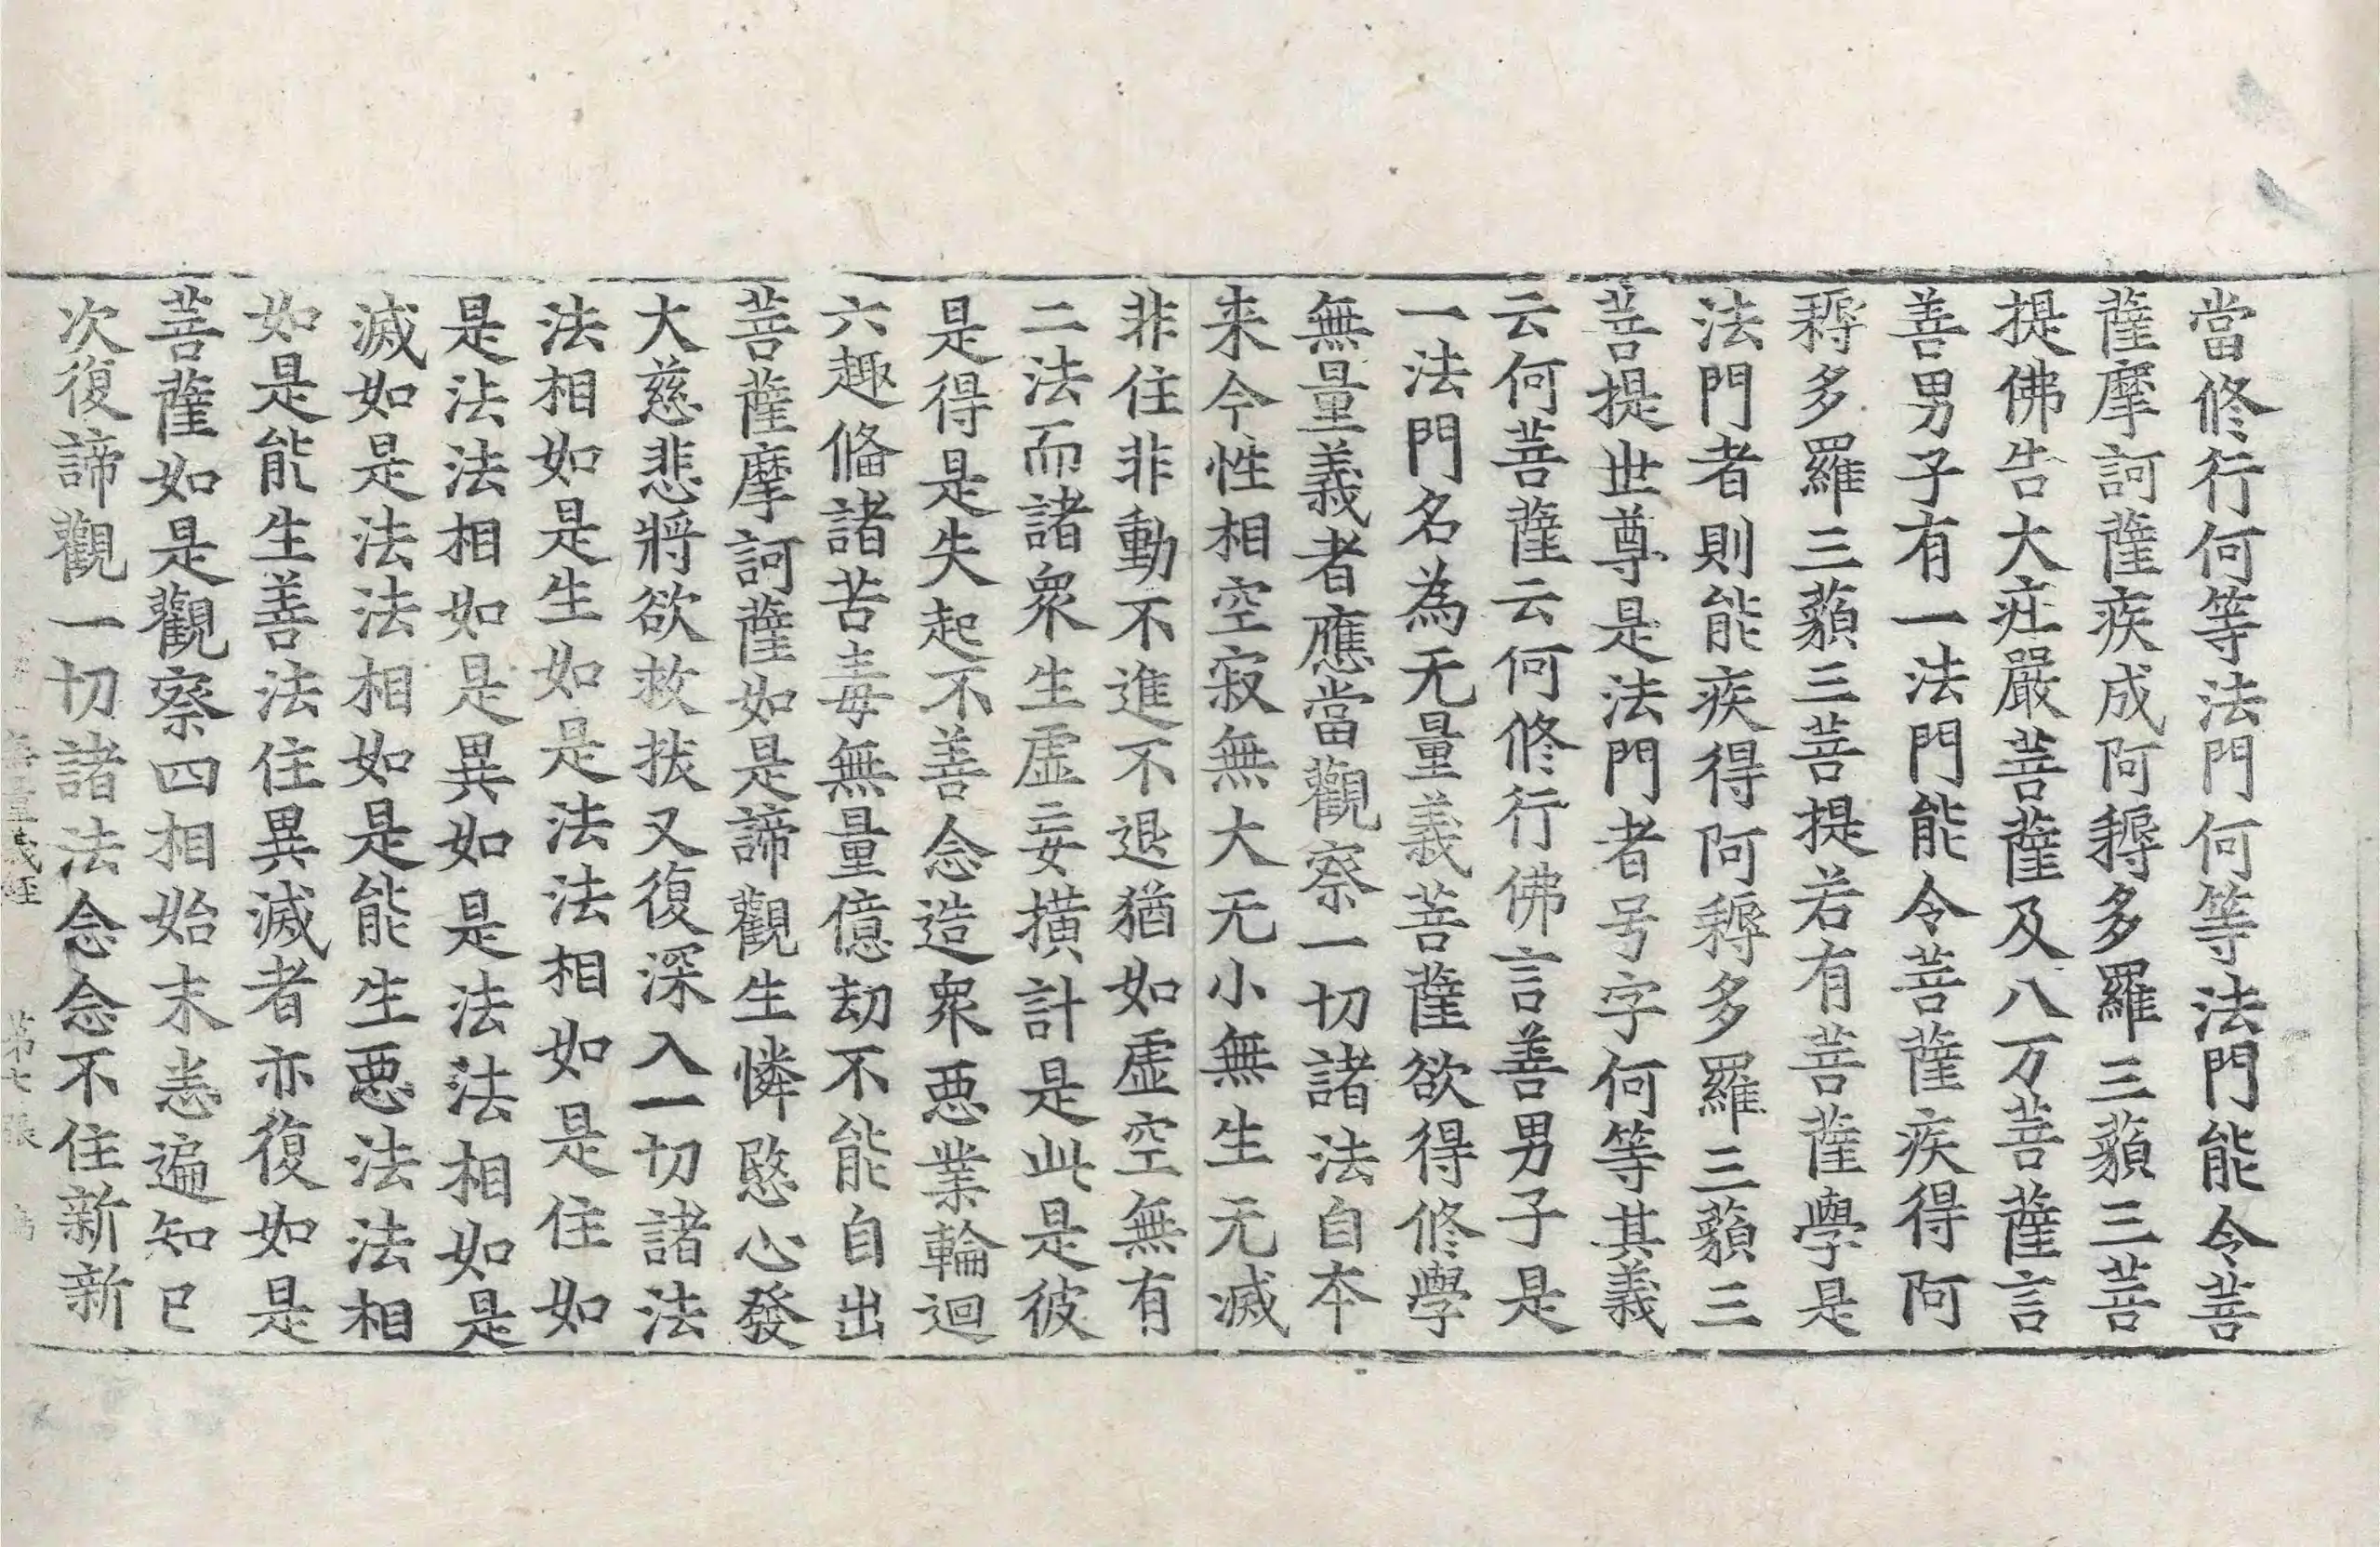 當修行何等法門何等法門能令菩
薩摩訶薩疾成阿耨多羅三藐三菩
提佛告大莊嚴菩薩及八万菩薩言
善男子有一法門能令菩薩疾得阿
耨多羅三藐三菩提若有菩薩學是
法門者則能疾得阿耨多羅三藐三
菩提世尊是法門者号字何等其義
云何菩薩云何修行佛言善男子是
一法門名為无量義菩薩欲得修學
無量義者應當觀察一切諸法自本
来今性相空寂無大无小無生无滅
非住非動不進不退猶如虛空無有
二法而諸衆生虛妄横計是此是彼
是得是失起不善念造衆惡業輪迴
六趣俻諸苦毒無量億劫不能自出
菩薩摩訶薩如是諦觀生憐愍心發
大慈悲將欲救拔又復深入一切諸法
法相如是生如是法法相如是住如
是法法相如是異如是法法相如是
滅如是法法相如是能生惡法法相
如是能生善法住異滅者亦復如是
菩薩如是觀察四相始末悉遍知已
次復諦觀一切諸法念念不住新新
無量義經 第七張